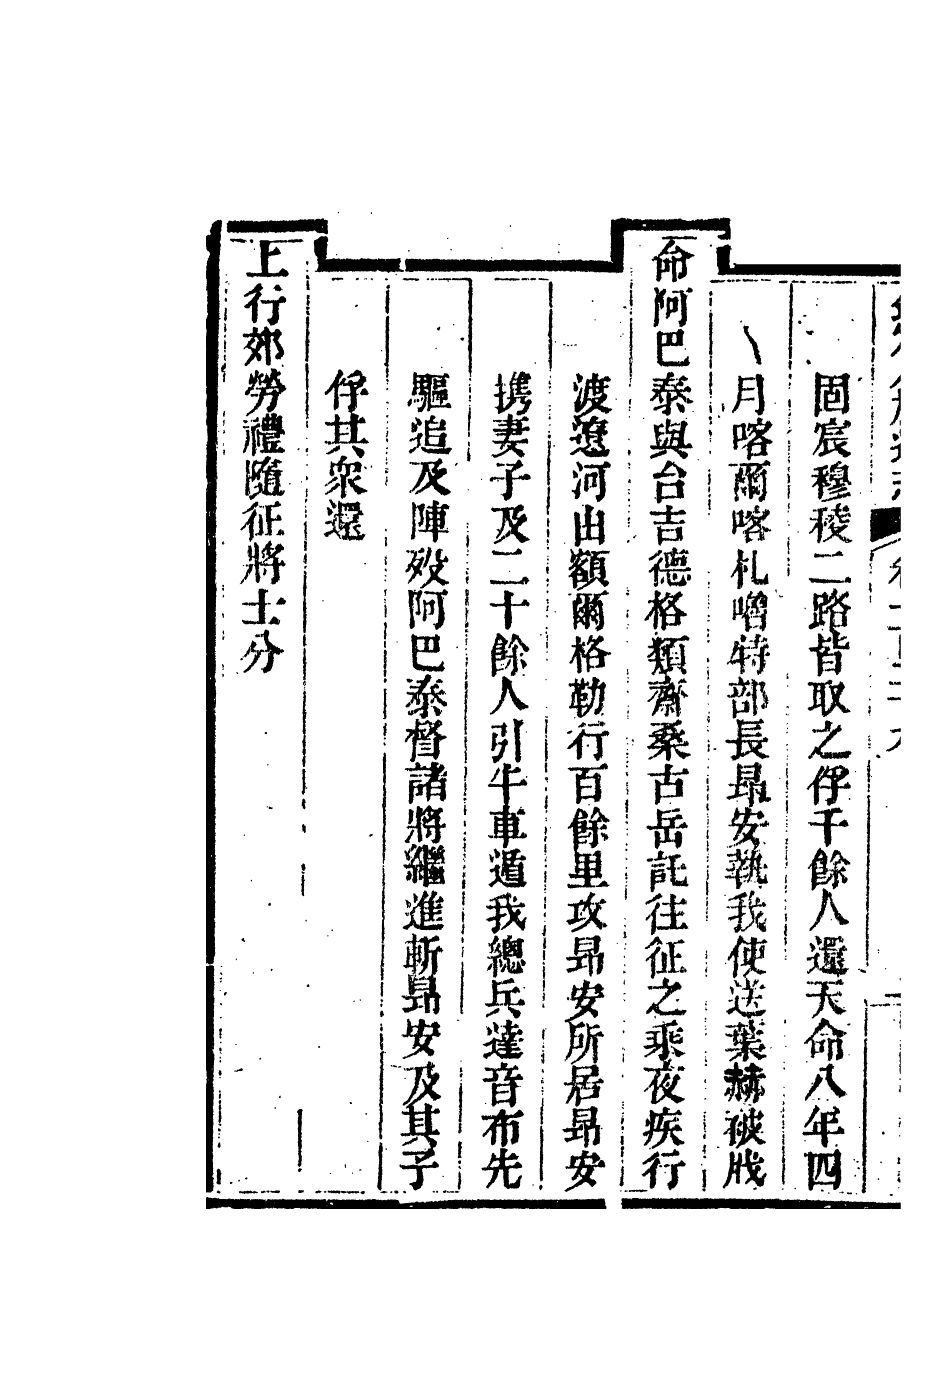 固宸穆稜二路皆取之俘千餘人還天命八年四
月喀爾喀札嚕特部長昂安執我使送葉赫被戕
命阿巴泰與台吉德格類齋桑古岳託往征之乘夜疾行
渡遼河出額爾格勒行百餘里攻昂安所居昂安
携妻子及二十餘人引牛車遁我總兵達音布先
驅追及陣歿阿巴泰督諸將繼進斬昂安及其子
俘其衆還
上行郊勞禮隨征將士分